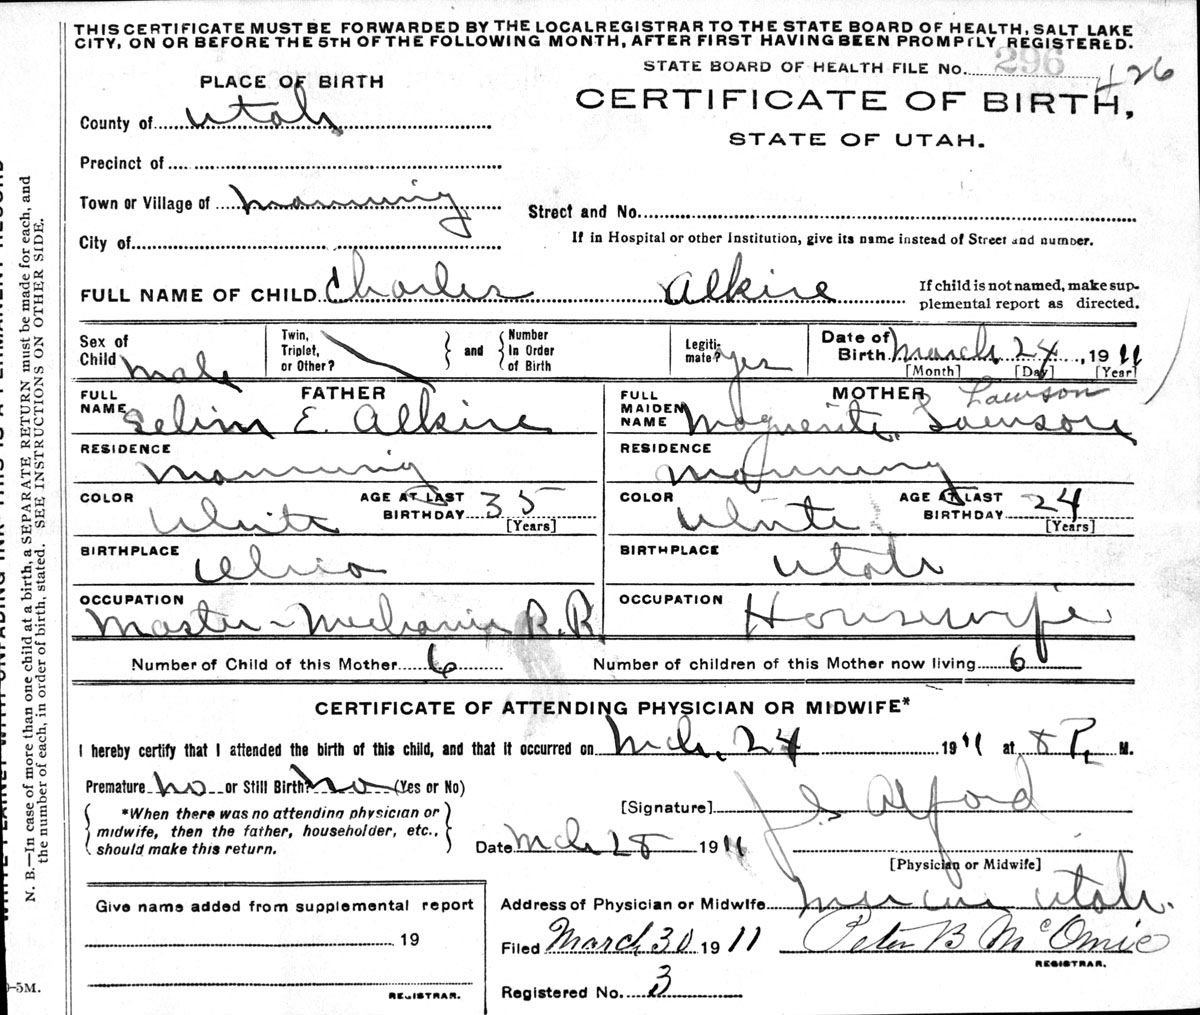 THIS CERTIFICATE MUST BE FORWARDED BY THE LOCAL REGISTRAR TO THE STATE BOARD OF HEALTH, SALT LAKE
CITY, ON OR BEFORE THE 5TH OF THE FOLLOWING MONTH, AFTER FIRST HAVING BEEN PROMPTLY REGISTERED.
STATE BOARD OF HEALTH FILE NO. 296 426
PLACE OF BIRTH
CERTIFICATE OF BIRTH,
County of Utah
STATE OF UTAH.
Precinct of
Town or Village of Manning
Street and No.
City of
If in Hospital or other Institution, give its name instead of Street and number.
FULL NAME OF CHILD Charles Alkire
If child is not named, make sup-
plemental report as directed.
Sex of
Child Male
Twin,
Triplet,
or Other?
and
Number
In Order
of Birth
Legiti-
mate? Yes
Date of
Birth March 24, 1911
[Month] [Day] [Year]
FATHER
FULL
NAME Selim E. Alkire
RESIDENCE
Manning
COLOR White
AGE AT LAST
BIRTHDAY 35
[Years]
BIRTHPLACE
Ohio
OCCUPATION
Master-Mechanic R.R.
MOTHER Lawson
FULL
MAIDEN
NAME Maguerite Lawson
RESIDENCE
Manning
COLOR White
AGE AT LAST
BIRTHDAY 24
[Years]
BIRTHPLACE
Utah
OCCUPATION
Housewife
Number of Child of this Mother 6
Number of children of this Mother now living 6
CERTIFICATE OF ATTENDING PHYSICIAN OR MIDWIFE*
I hereby certify that I attended the birth of this child, and that it occurred on Mch. 24 1911 at 8 P. M.
Premature no or Still Birth? no (Yes or No)
*When there was no attending physician or
midwife, then the father, householder, etc.,
should make this return.
[Signature] J.S. Alford
Date Mch 28 1911
[Physician or Midwife]
Give name added from supplemental report
19
REGISTRAR.
Address of Physician or Midwife Mercur Utah.
Filed March 30 1911 Peter B McOmie
REGISTRAR.
Registered No. 3
N. B.—In case of more than one child at a birth, a SEPARATE RETURN must be made for each, and
the number of each, in order of birth, stated. SEE INSTRUCTIONS ON OTHER SIDE.
-5M.